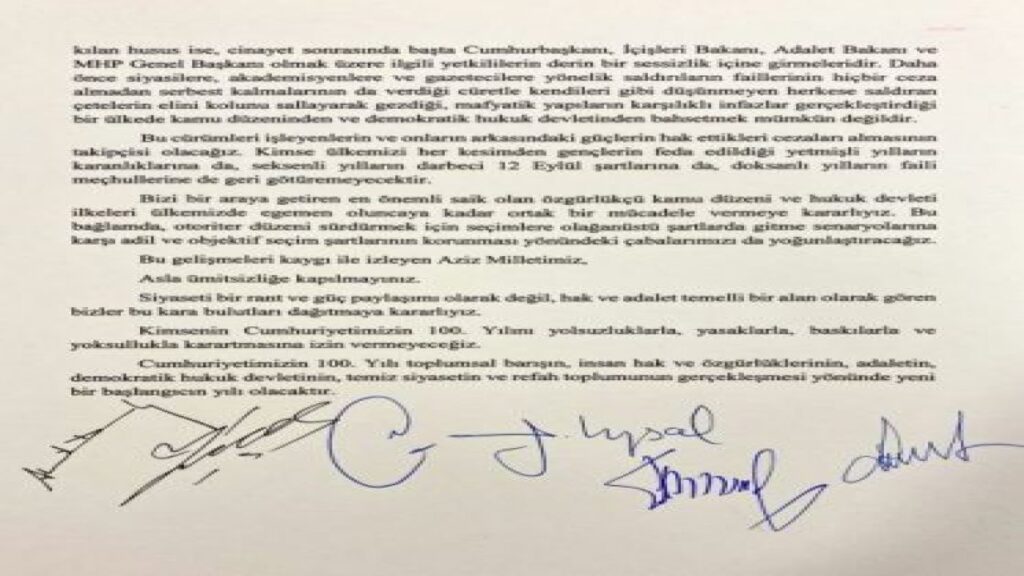 kılan husus ise, cinayet sonrasında başta Cumhurbaşkanı, İçişleri Bakanı, Adalet Bakanı ve
MHP Genel Başkanı olmak üzere ilgili yetkililerin derin bir sessizlik içine girmeleridir. Daha
önce siyasilere, akademisyenlere ve gazetecilere yönelik saldırıların faillerinin hiçbir ceza
almadan serbest kalmalarının da verdiği cüretle kendileri gibi düşünmeyen herkese saldıran
çetelerin elini kolunu sallayarak gezdiği, mafyatik yapıların karşılıklı infazlar gerçekleştirdiği
bir ülkede kamu düzeninden ve demokratik hukuk devletinden bahsetmek mümkün değildir.
Bu cürümleri işleyenlerin ve onların arkasındaki güçlerin hak ettikleri cezaları almasının
takipçisi olacağız. Kimse ülkemizi her kesimden gençlerin feda edildiği yetmişli yılların
karanlıklarına da, seksenli yılların darbeci 12 Eylül şartlarına da, doksanlı yılların faili
meçhullerine de geri götüremeyecektir.
Bizi bir araya getiren en önemli saik olan özgürlükçü kamu düzeni ve hukuk devleti
ilkeleri ülkemizde egemen oluncaya kadar ortak bir mücadele vermeye kararlıyız. Bu
bağlamda, otoriter düzeni sürdürmek için seçimlere olağanüstü şartlarda gitme senaryolarına
karşı adil ve objektif seçim şartlarının korunması yönündeki çabalarımızı da yoğunlaştıracağız.
Bu gelişmeleri kaygı ile izleyen Aziz Milletimiz,
Asla ümitsizliğe kapılmayınız.
Siyaseti bir rant ve güç paylaşımı olarak değil, hak ve adalet temelli bir alan olarak gören
bizler bu kara bulutları dağıtmaya kararlıyız.
Kimsenin Cumhuriyetimizin 100. Yılını yolsuzluklarla, yasaklarla, baskılarla ve
yoksullukla karartmasına izin vermeyeceğiz.
Cumhuriyetimizin 100. Yılı toplumsal barışın, insan hak ve özgürlüklerinin, adaletin,
demokratik hukuk devletinin, temiz siyasetin ve refah toplumunun gerçekleşmesi yönünde yeni
bir başlangıcın yılı olacaktır.